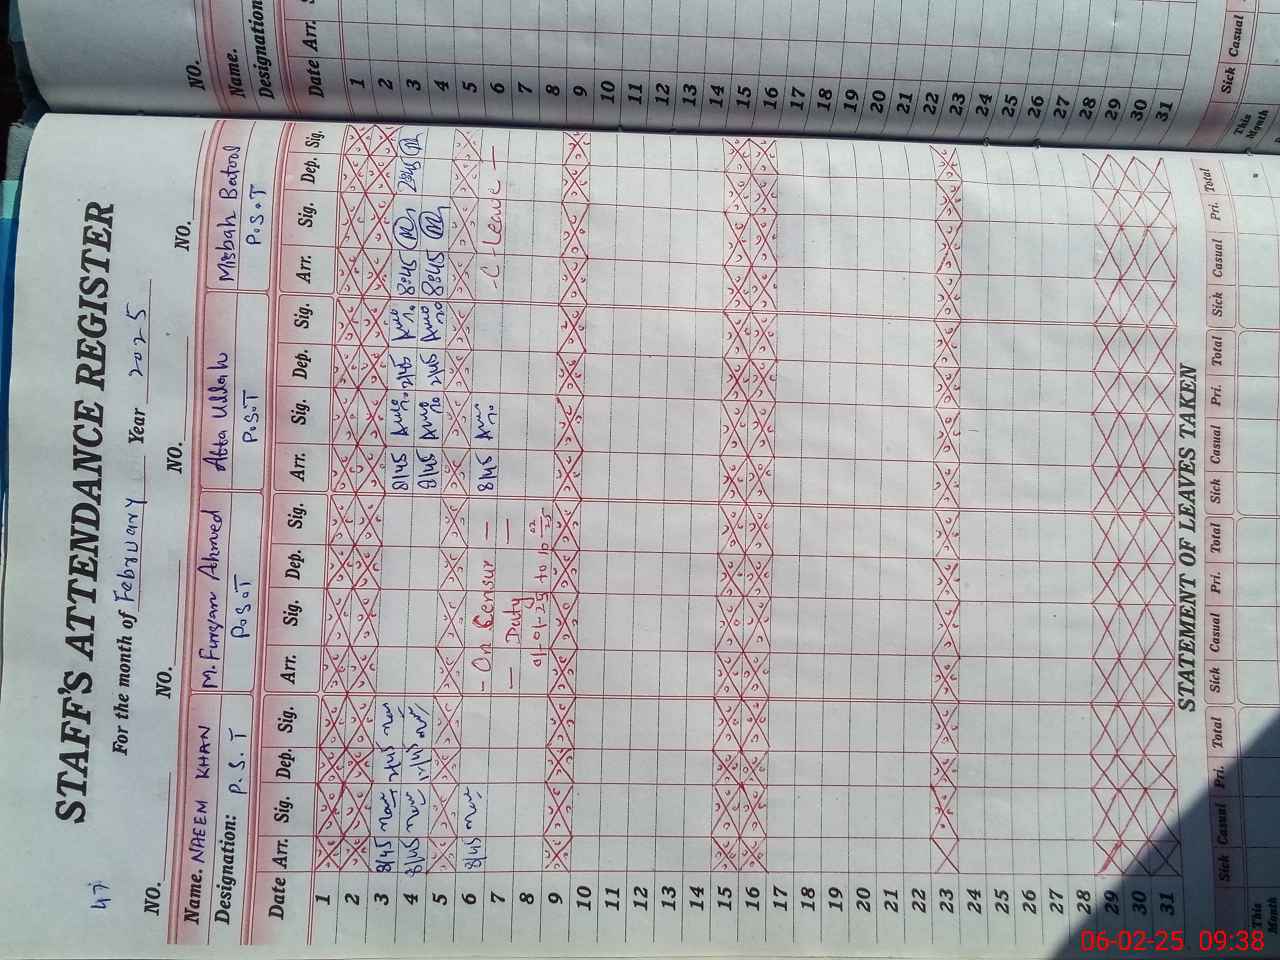 47
STAFF'S ATTENDANCE REGISTER
For the month of February Year 2025
NO. NO. NO. NO.
Name. NAEEM KHAN M. Furqan Ahmed Atta Ullah Misbah Batool
Designation: P.S.T P.S.T P.S.T P.S.T
Date Arr. Sig. Dep. Sig. Arr. Sig. Dep. Sig. Arr. Sig. Dep. Sig. Arr. Sig. Dep. Sig.
1
2
3 8/45 2/45 8/45 2/45 8:45 2:45
4 8/45 12/45 8/45 2/45 8:45
5
6 8/45 - On Census - 8/45 - C - Leave -
7 - Duty -
8 01-01-25 to 10-02-25
9
10
11
12
13
14
15
16
17
18
19
20
21
22
23
24
25
26
27
28
29
30
31
STATEMENT OF LEAVES TAKEN
Sick Casual Pri. Total Sick Casual Pri. Total Sick Casual Pri. Total Sick Casual Pri. Total
This Month
NO.
Name.
Designation
Date Arr. S
1
2
3
4
5
6
7
8
9
10
11
12
13
14
15
16
17
18
19
20
21
22
23
24
25
26
27
28
29
30
31
Sick Casual
This Month
06-02-25 09:38